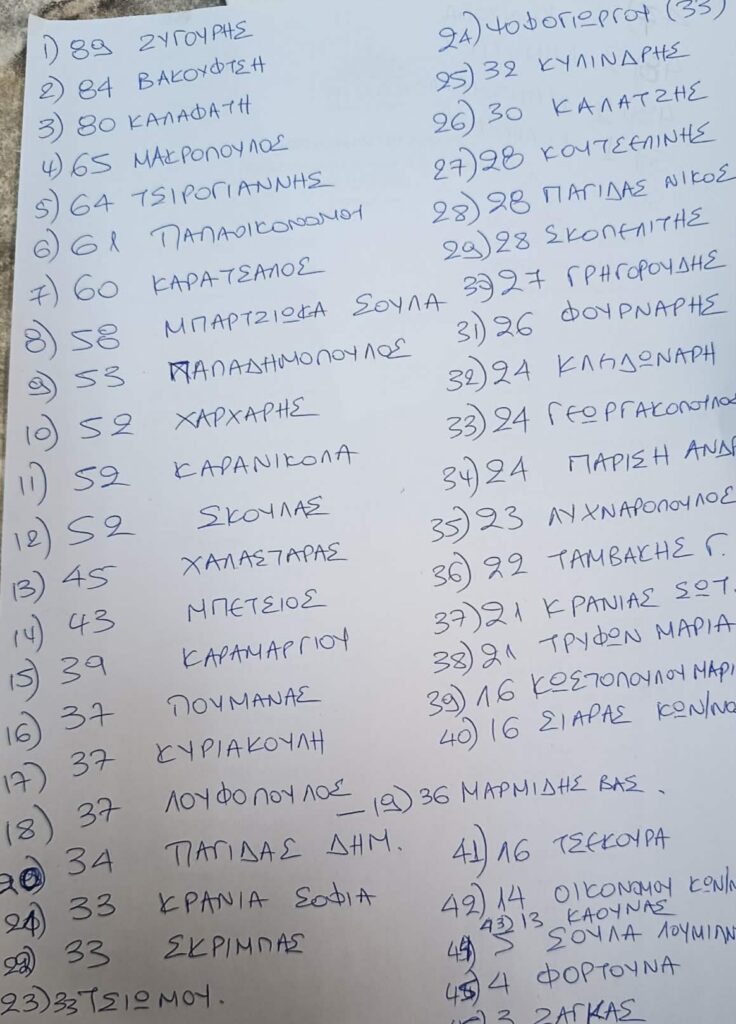 1) 89 ΖΥΓΟΥΡΗΣ
2) 84 ΒΑΚΟΥΦΤΣΗ
3) 80 ΚΑΛΑΦΑΤΗ
4) 65 ΜΑΚΡΟΠΟΥΛΟΣ
5) 64 ΤΣΙΡΟΓΙΑΝΝΗΣ
6) 61 ΠΑΠΑΟΙΚΟΝΟΜΟΥ
7) 60 ΚΑΡΑΤΣΑΛΟΣ
8) 58 ΜΠΑΡΤΖΙΩΚΑ ΣΟΥΛΑ
9) 53 ΠΑΠΑΔΗΜΟΠΟΥΛΟΣ
10) 52 ΧΑΡΧΑΡΗΣ
11) 52 ΚΑΡΑΝΙΚΟΛΑ
12) 52 ΣΚΟΥΛΑΣ
13) 45 ΧΑΛΑΣΤΑΡΑΣ
14) 43 ΜΠΕΤΣΙΟΣ
15) 39 ΚΑΡΑΜΑΡΓΙΟΥ
16) 37 ΠΟΥΜΑΝΑΣ
17) 37 ΚΥΡΙΑΚΟΥΛΗ
18) 37 ΛΟΥΦΟΠΟΥΛΟΣ
19) 36 ΜΑΡΜΙΔΗΣ ΒΑΣ.
20) 34 ΠΑΓΙΔΑΣ ΔΗΜ.
21) 33 ΚΡΑΝΙΑ ΣΟΦΙΑ
22) 33 ΣΚΡΙΜΠΑΣ
23) 33 ΤΣΙΩΜΟΥ.
24) ΨΟΦΟΓΙΩΡΓΟΥ (33)
25) 32 ΚΥΛΙΝΔΡΗΣ
26) 30 ΚΑΛΑΤΖΗΣ
27) 28 ΚΟΥΤΣΕΛΙΝΗΣ
28) 28 ΠΑΓΙΔΑΣ ΝΙΚΟΣ
29) 28 ΣΚΟΠΕΛΙΤΗΣ
30) 27 ΓΡΗΓΟΡΟΥΔΗΣ
31) 26 ΦΟΥΡΝΑΡΗΣ
32) 24 ΚΛΗΔΩΝΑΡΗ
33) 24 ΓΕΩΡΓΑΚΟΠΟΥΛΟΣ
34) 24 ΠΑΡΙΣΗ ΑΝΔΡ
35) 23 ΛΥΧΝΑΡΟΠΟΥΛΟΣ
36) 22 ΤΑΜΒΑΚΗΣ Γ.
37) 21 ΚΡΑΝΙΑΣ ΣΩΤ.
38) 21 ΤΡΥΦΩΝ ΜΑΡΙΑ
39) 16 ΚΩΣΤΟΠΟΥΛΟΥ ΜΑΡΙ
40) 16 ΣΙΑΡΑΣ ΚΩΝ/ΝΟ
41) 16 ΤΣΕΚΟΥΡΑ
42) 14 ΟΙΚΟΝΟΜΟΥ ΚΩΝ/Ν
43) 13 ΚΑΟΥΝΑΣ
44) 5 ΣΟΥΛΑ ΛΟΥΜΙΑΝ
45) 4 ΦΟΡΤΟΥΝΑ
3 ΖΑΓΚΑΣ